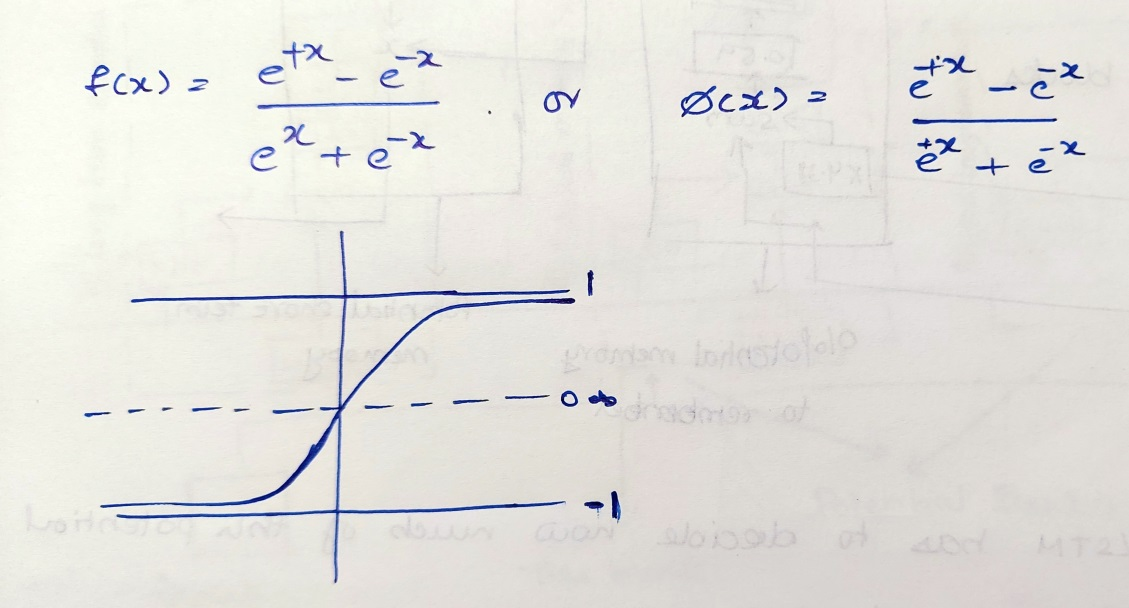 f(x) = (e^{+x} - e^{-x}) / (e^{x} + e^{-x}) . or ø(x) = (e^{+x} - e^{-x}) / (e^{+x} + e^{-x})
1
0
-1